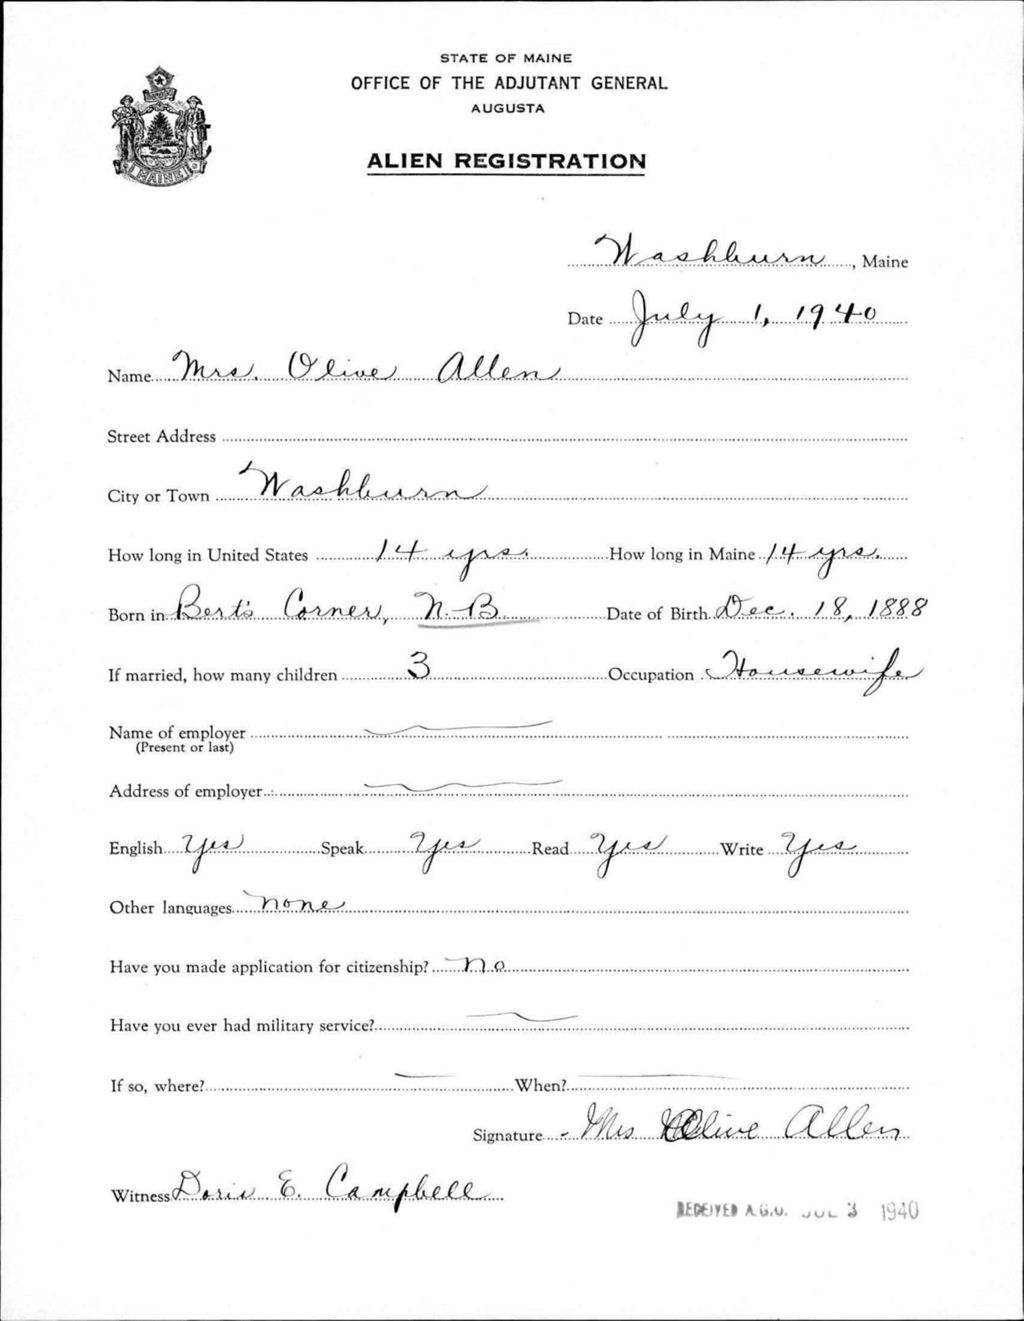 STATE OF MAINE
OFFICE OF THE ADJUTANT GENERAL
AUGUSTA
ALIEN REGISTRATION
MAINE
Washburn, Maine
Date July 1, 1940
Name Mrs. Olive Allen
Street Address
City or Town Washburn
How long in United States 14 yrs. How long in Maine 14 yrs.
Born in Bert's Corner, N.B. Date of Birth Dec. 18, 1888
If married, how many children 3 Occupation Housewife
Name of employer
(Present or last)
Address of employer
English Yes Speak Yes Read Yes Write Yes
Other languages none
Have you made application for citizenship? no
Have you ever had military service?
If so, where? When?
Signature Mrs Olive Allen
Witness Doris E. Campbell
RECEIVED A.G.O. JUL 3 1940